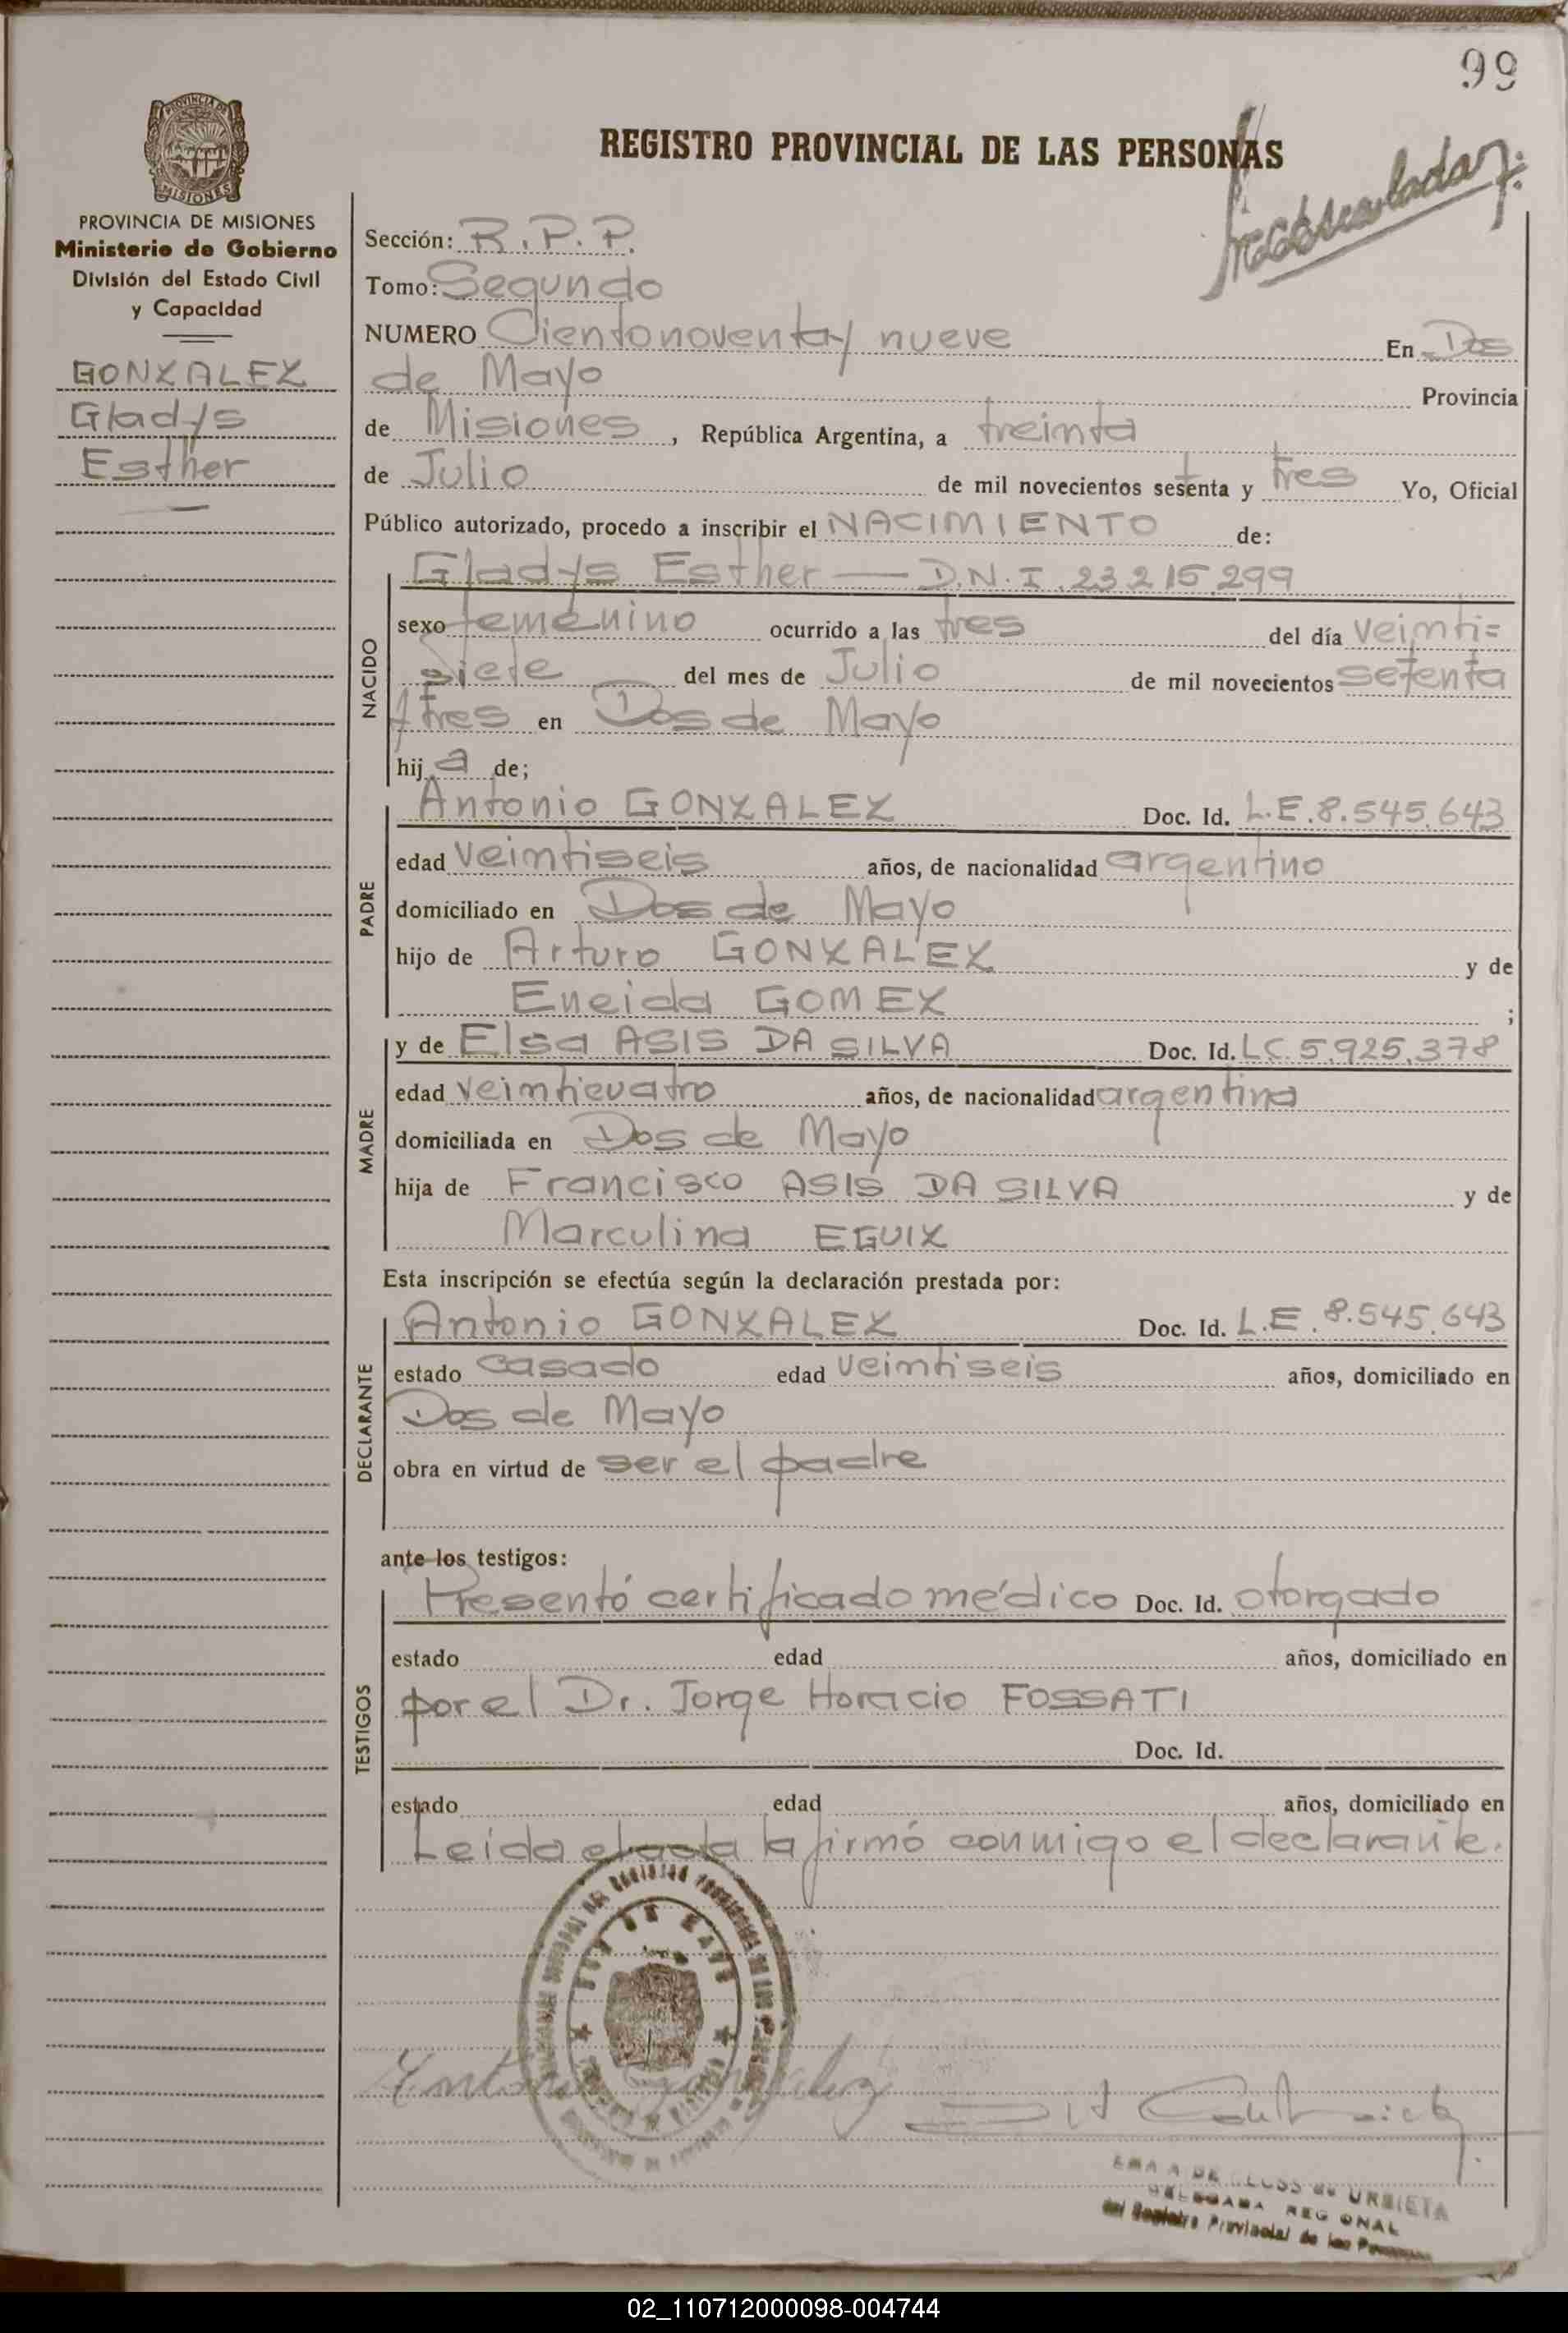 99
PROVINCIA DE
MISIONES
REGISTRO PROVINCIAL DE LAS PERSONAS
PROVINCIA DE MISIONES
Ministerio de Gobierno
División del Estado Civil
y Capacidad
GONZALEZ
Gladys
Esther
Sección: R.P.P.
Tomo: Segundo
NUMERO Ciento noventa y nueve En Dos
de Mayo Provincia
de Misiones, República Argentina, a treinta
de Julio de mil novecientos setenta y tres Yo, Oficial
Público autorizado, procedo a inscribir el NACIMIENTO de:
NACIDO
Gladys Esther — D.N.I. 23.215.299
sexo femenino ocurrido a las tres del día veinti=
siete del mes de Julio de mil novecientos setenta
y tres en Dos de Mayo
hija de;
PADRE
Antonio GONZALEZ Doc. Id. L.E. 8.545.643
edad veintiseis años, de nacionalidad argentino
domiciliado en Dos de Mayo
hijo de Arturo GONZALEZ y de
Eneida GOMEZ ;
MADRE
y de Elsa ASIS DA SILVA Doc. Id. LC. 5.925.378
edad veinticuatro años, de nacionalidad argentina
domiciliada en Dos de Mayo
hija de Francisco ASIS DA SILVA y de
Marculina EGUIZ
Esta inscripción se efectúa según la declaración prestada por:
DECLARANTE
Antonio GONZALEZ Doc. Id. L.E. 8.545.643
estado casado edad veintiseis años, domiciliado en
Dos de Mayo
obra en virtud de ser el padre
ante los testigos:
TESTIGOS
Presentó certificado médico Doc. Id. otorgado
estado edad años, domiciliado en
por el Dr. Jorge Horacio FOSSATI
Doc. Id.
estado edad años, domiciliado en
Leida el acta la firmó conmigo el declarante.
Antonio Gonzalez
DE URBIETA
DELEGADA REGIONAL
del Registro Provincial de las Personas
02_110712000098-004744